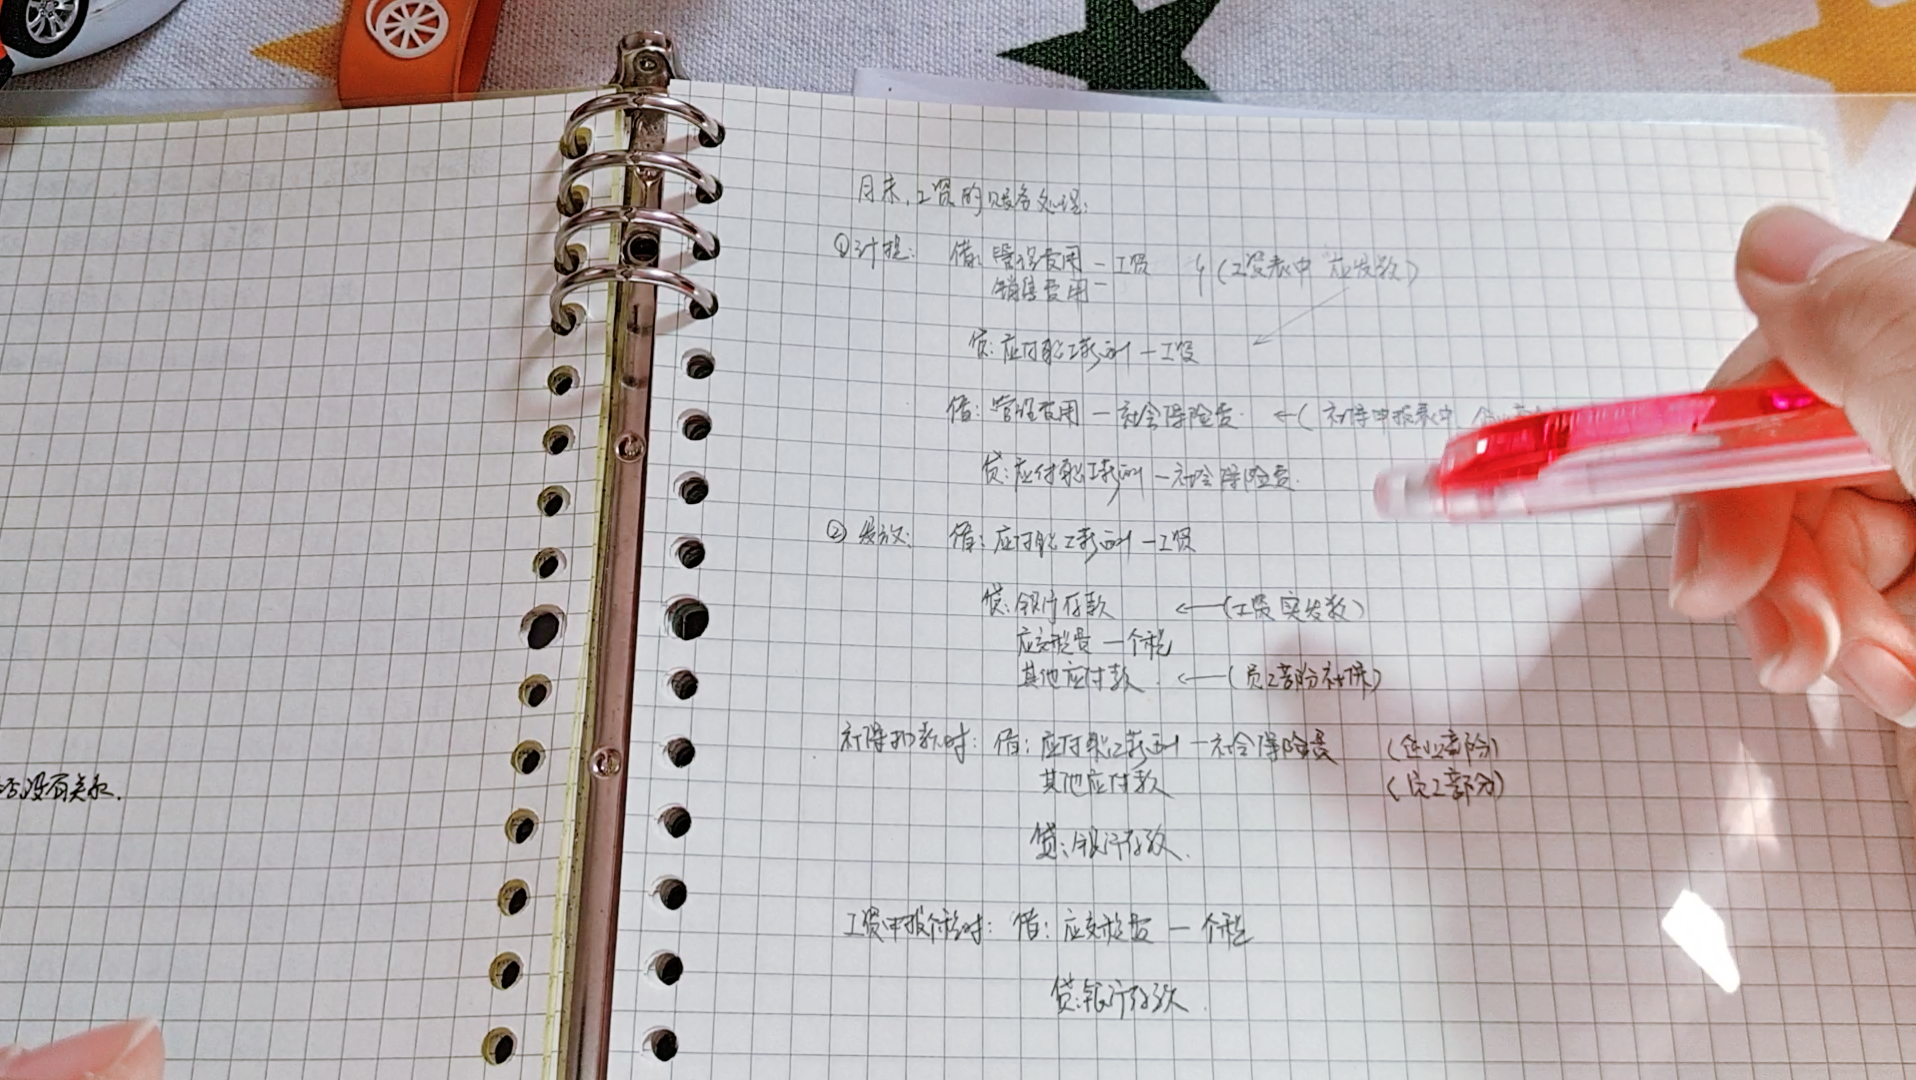 活没有关系.
月末,工资的账务处理:
①计提: 借: 管理费用-工资 ←(工资表中 应发数)
销售费用-
贷: 应付职工薪酬-工资
借: 管理费用-社会保险费. ←(社保申报表中,企业
贷: 应付职工薪酬-社会保险费.
②发放: 借: 应付职工薪酬-工资
贷: 银行存款 ←(工资实发数)
应交税费-个税
其他应付款. ←(员工部份社保)
社保扣款时: 借: 应付职工薪酬-社会保险费 (企业部份)
其他应付款 (员工部分)
贷: 银行存款.
工资申报个税时: 借: 应交税费-个税
贷: 银行存款.